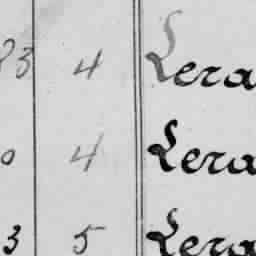 23 4 Lera
0 4 Lera
3 5 Lera